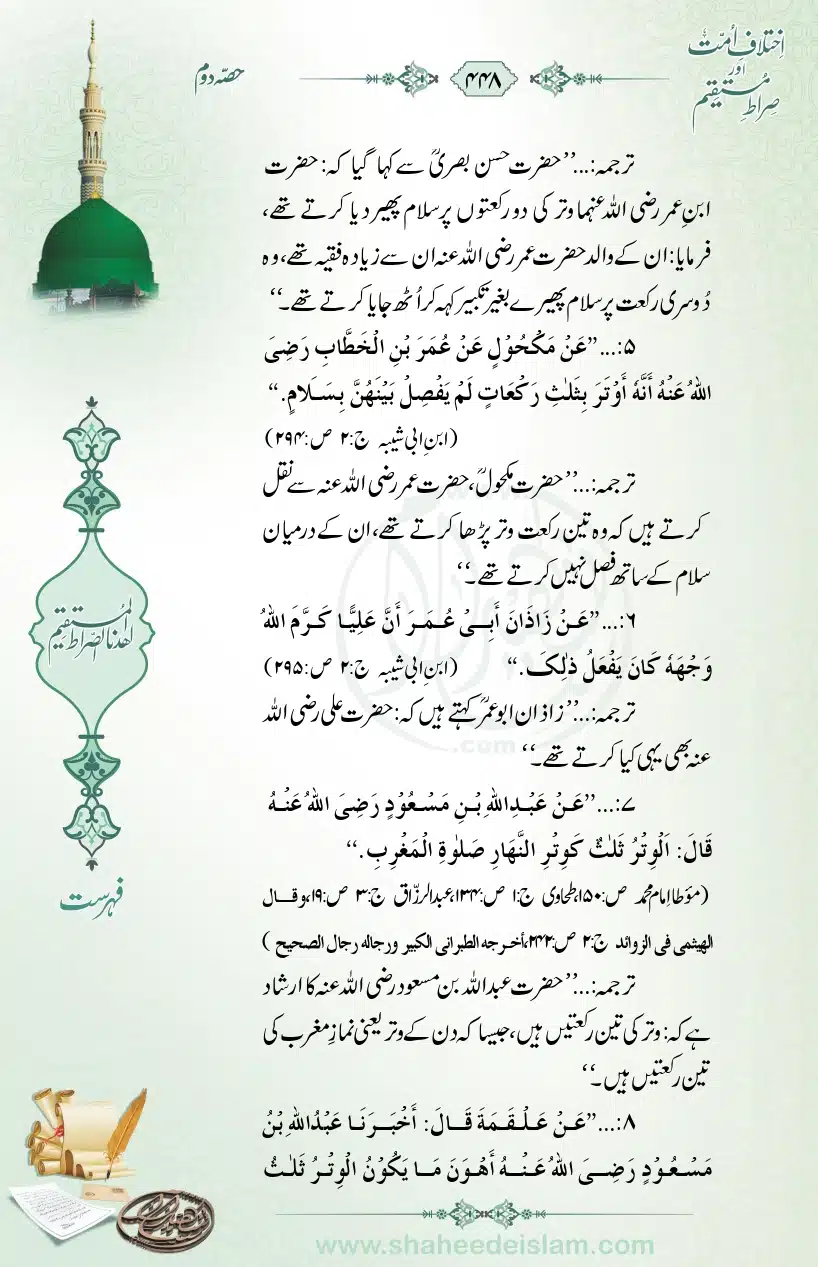 اِختلافِ اُمّت
اور
صراطِ مُستقیم
۴۴۸
حصّہ دوم
ترجمہ:...’’حضرت حسن بصریؒ سے کہا گیا کہ: حضرت
ابنِ عمر رضی اللہ عنہما وتر کی دو رکعتوں پر سلام پھیر دیا کرتے تھے،
فرمایا: ان کے والد حضرت عمر رضی اللہ عنہ ان سے زیادہ فقیہ تھے، وہ
دُوسری رکعت پر سلام پھیرے بغیر تکبیر کہہ کر اُٹھ جایا کرتے تھے۔‘‘
۵:...’’عَنْ مَكْحُوْلٍ عَنْ عُمَرَ بْنِ الْخَطَّابِ رَضِیَ
اللهُ عَنْهُ أَنَّهٗ أَوْتَرَ بِثَلٰثِ رَكْعَاتٍ لَمْ يَفْصِلْ بَيْنَهُنَّ بِسَلَامٍ.‘‘
(ابنِ ابی شیبہ ج:۲ ص:۲۹۴)
ترجمہ:...’’حضرت مکحولؒ، حضرت عمر رضی اللہ عنہ سے نقل
کرتے ہیں کہ وہ تین رکعت وتر پڑھا کرتے تھے، ان کے درمیان
سلام کے ساتھ فصل نہیں کرتے تھے۔‘‘
۶:...’’عَنْ زَاذَانَ أَبِیْ عُمَرَ أَنَّ عَلِيًّا كَرَّمَ اللهُ
وَجْهَهٗ كَانَ يَفْعَلُ ذٰلِكَ.‘‘ (ابنِ ابی شیبہ ج:۲ ص:۲۹۵)
ترجمہ:...’’زاذان ابو عمرؒ کہتے ہیں کہ: حضرت علی رضی اللہ
عنہ بھی یہی کیا کرتے تھے۔‘‘
۷:...’’عَنْ عَبْدِاللهِ بْنِ مَسْعُوْدٍ رَضِیَ اللهُ عَنْهُ
قَالَ: اَلْوِتْرُ ثَلٰثٌ كَوِتْرِ النَّهَارِ صَلٰوةِ الْمَغْرِبِ.‘‘
(مؤطا امام محمد ص:۱۵۰، طحاوی ج:۱ ص:۱۳۴، عبدالرزّاق ج:۳ ص:۱۹، وقال
الهيثمى فى الزوائد ج:۲ ص:۲۴۲، أخرجه الطبرانى الكبير ورجاله رجال الصحيح)
ترجمہ:...’’حضرت عبداللہ بن مسعود رضی اللہ عنہ کا ارشاد
ہے کہ: وتر کی تین رکعتیں ہیں، جیسا کہ دن کے وتر یعنی نمازِ مغرب کی
تین رکعتیں ہیں۔‘‘
۸:...’’عَنْ عَلْقَمَةَ قَالَ: أَخْبَرَنَا عَبْدُاللهِ بْنُ
مَسْعُوْدٍ رَضِیَ اللهُ عَنْهُ أَهْوَنَ مَا يَكُوْنُ الْوِتْرُ ثَلٰثُ
اهدنا الصّراط المستقیم
فہرست
.com
www.shaheedeislam.com